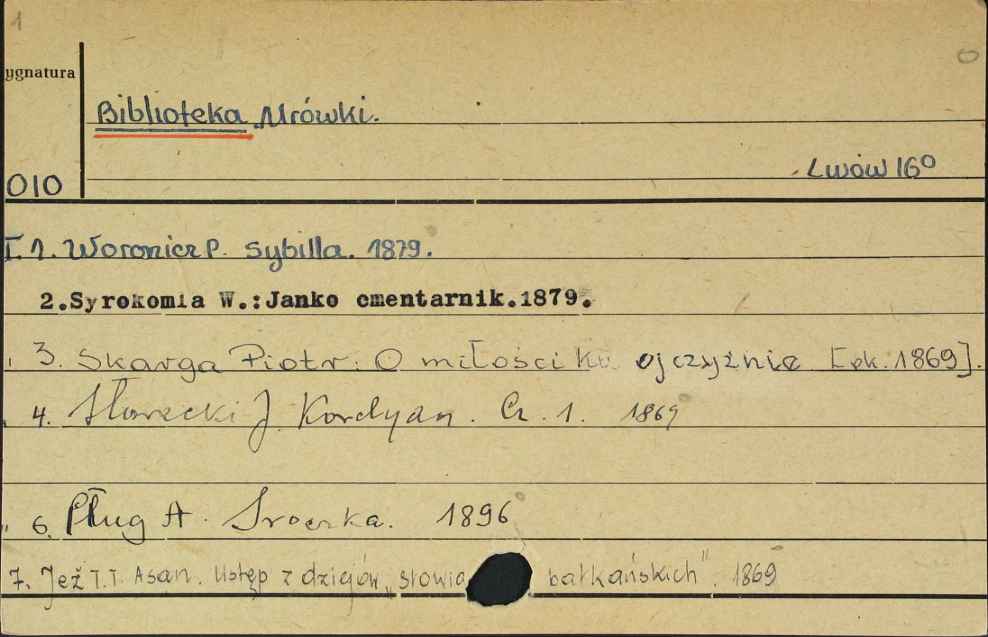 1
ygnatura
Biblioteka Mrówki.
010
Lwów 16°
T. 1. Woronicz P. Sybilla. 1879.
2.Syrokomia W.:Janko cmentarnik.1879.
" 3. Skarga Piotr. O miłości ku ojczyźnie [ok. 1869].
" 4. Słowacki J. Kordyan. Cz. 1. 1869
" 6. Pług A. Sroczka. 1896
7. Jeż T.T. Asan. Ustęp z dziejów „słowia bałkańskich". 1869